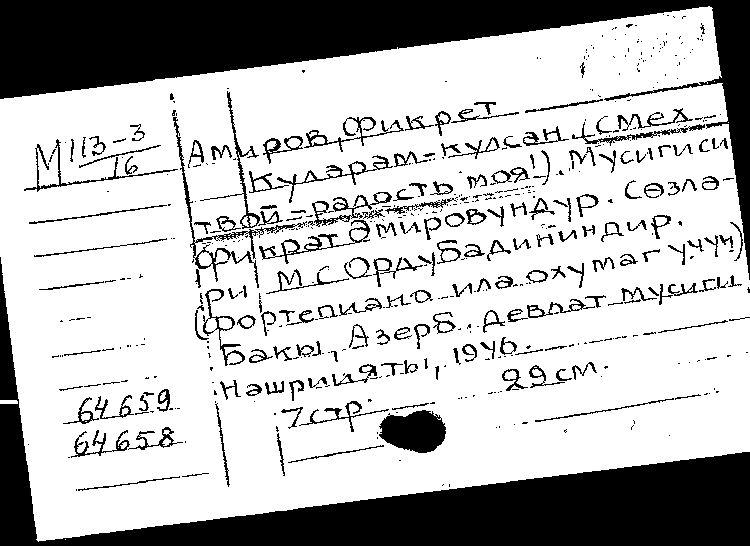 М 113-3
16
Амиров, Фикрет
Куларам-кулсан. (Смех
твой - радость моя!). Мусигиси
Фикрәт Әмировундур. Сөзлә-
ри М С Ордубадининдир.
(Фортепиано илә охумаг учун)
Бакы, Азерб. Девлат мусиги
Нәшрииәты, 1946.
7 стр. 29 см.
64659
64658